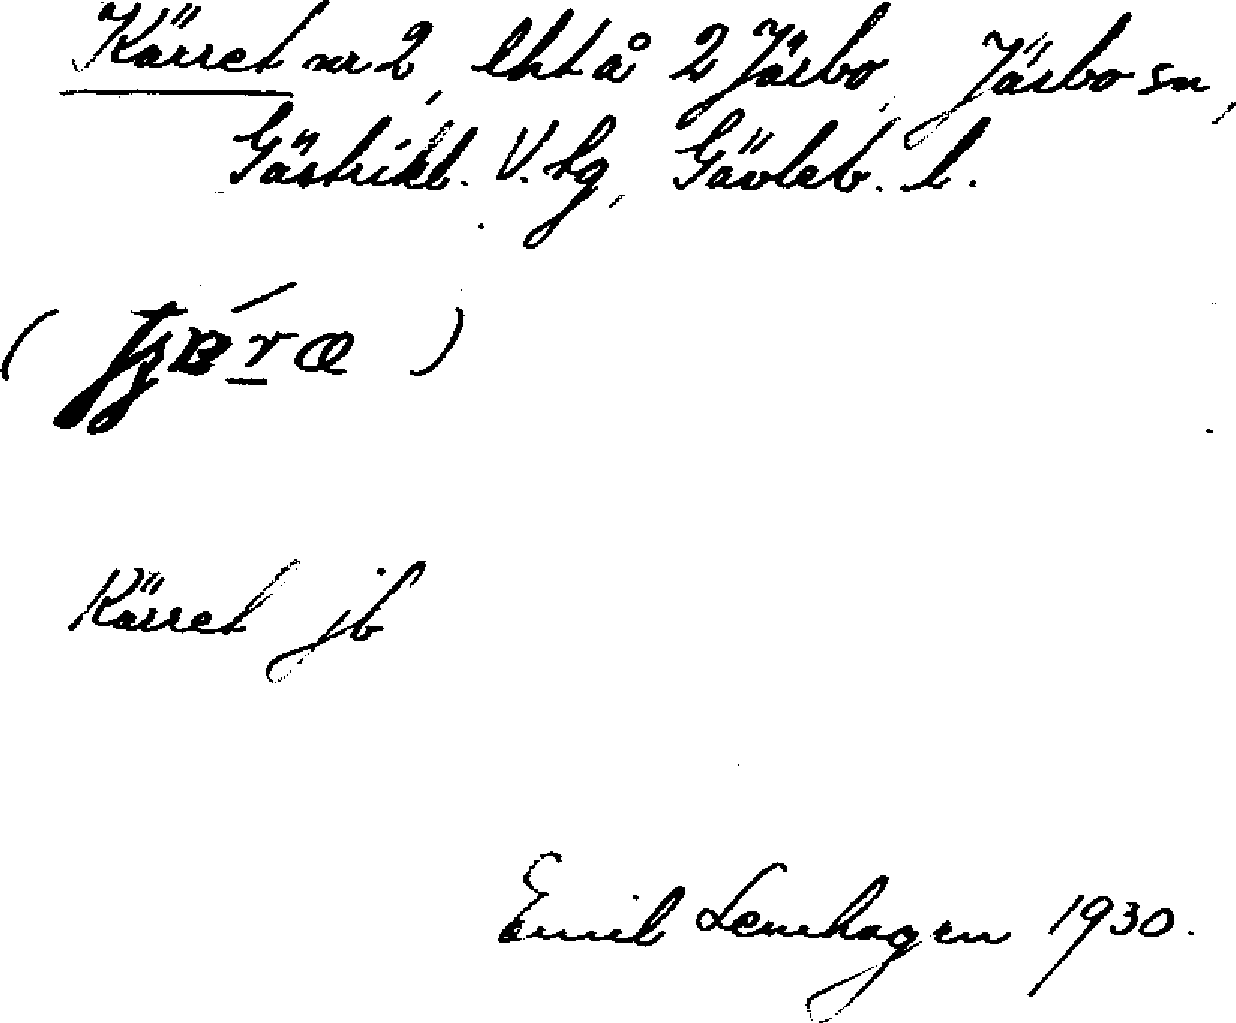 Kärret nr 2, lht å 2 Järbo, Järbo sn,
Gästrikl. V. tg, Gävleb. l.
Kärret jb
Emil Lenhagen 1930.